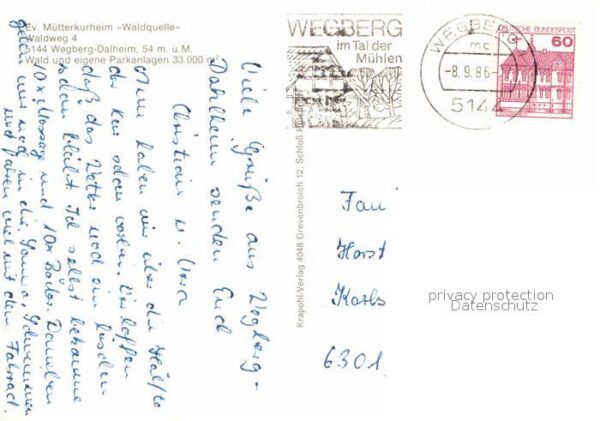 Ev. Mütterkurheim »Waldquelle«
Waldweg 4
5144 Wegberg-Dalheim, 54 m. ü. M.
Wald und eigene Parkanlagen 33.000 m²
WEGBERG
im Tal der
Mühlen
WEGBERG
mc
-8.9.86-
5144
DEUTSCHE BUNDESPOST
60
Viele Grüße aus Wegberg-
Dahlheim senden Euch
Christian u. Vera
Nun haben wir über die Hälfte
der Kur schon vorbei. Wir hoffen
daß das Wetter noch ein bischen
schön bleibt. Ich selbst bekomme
10 x Massag und 10 x Bäder. Daneben
gehen wir noch in die Sauna, Schwimmen
und fahren viel mit dem Fahrrad.
Krapohl-Verlag 4048 Grevenbroich 12, Schloß
Fam
Horst
Karls
6301
privacy protection
Datenschutz